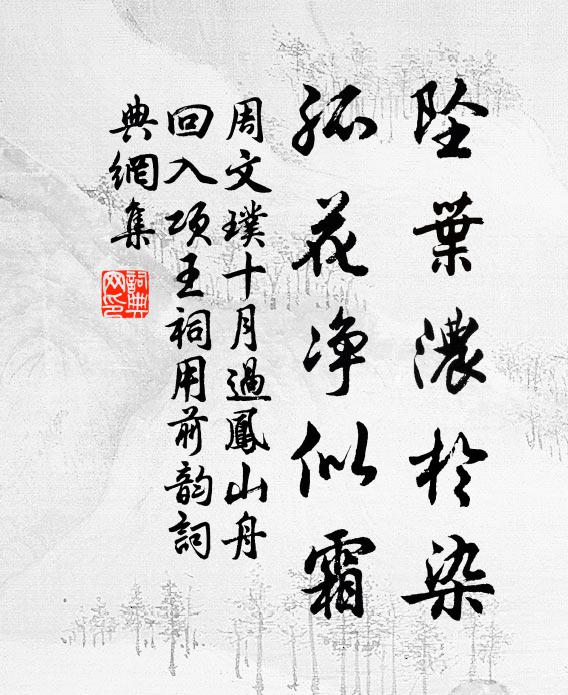 坠葉濃於染
孤花净似霜
周文璞十月過鳳山舟
回入项王祠用前韵詞
典網集
詞典
网印